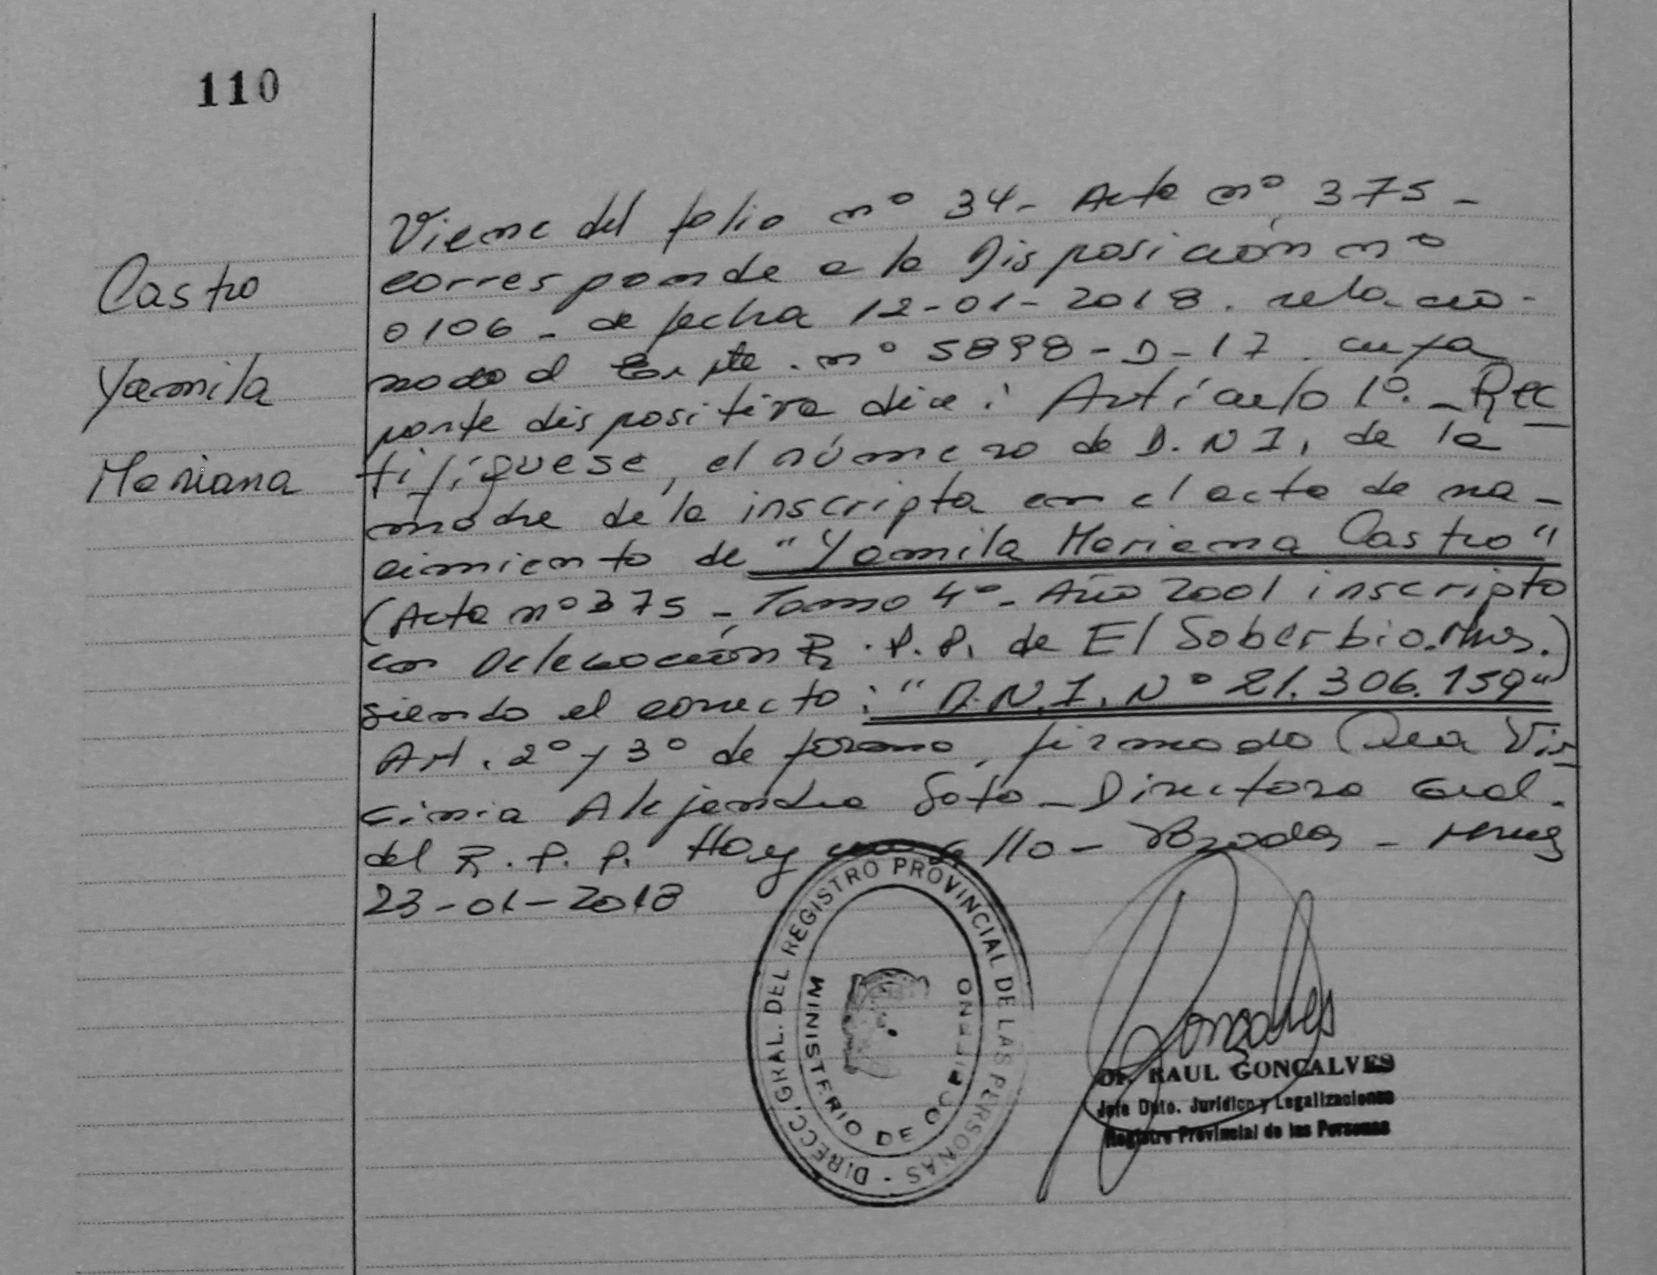 110
Castro
Yamila
Mariana
Viene del folio nº 34- Acta nº 375-
corresponde a la Disposición nº
0106- de fecha 12-01-2018. relacio-
nado al Expte. nº 5898-D-17. cuya
parte dispositiva dice: Artículo 1º.- Rec
tifíquese, el número de D.N.I. de la
madre de la inscripta en el acta de na-
cimiento de "Yamila Mariana Castro"
(Acta nº 375- Tomo 4º- Año 2001 inscripta
en Delegación R.P.P. de El Soberbio. Mnes.)
siendo el correcto: "D.N.I. Nº 21.306.159"
Art. 2º y 3º de forma, firmado Dra Vir
ginia Alejandra Soto- Directora Gral.
del R.P.P. Hoy 110- Posadas- Mnes
23-01-2018
DIRECC. GRAL. DEL REGISTRO PROVINCIAL DE LAS PERSONAS -
MINISTERIO DE GOBIERNO
Gonçalves
Dr. RAUL GONCALVES
Jefe Dpto. Jurídico y Legalizaciones
Registro Provincial de las Personas